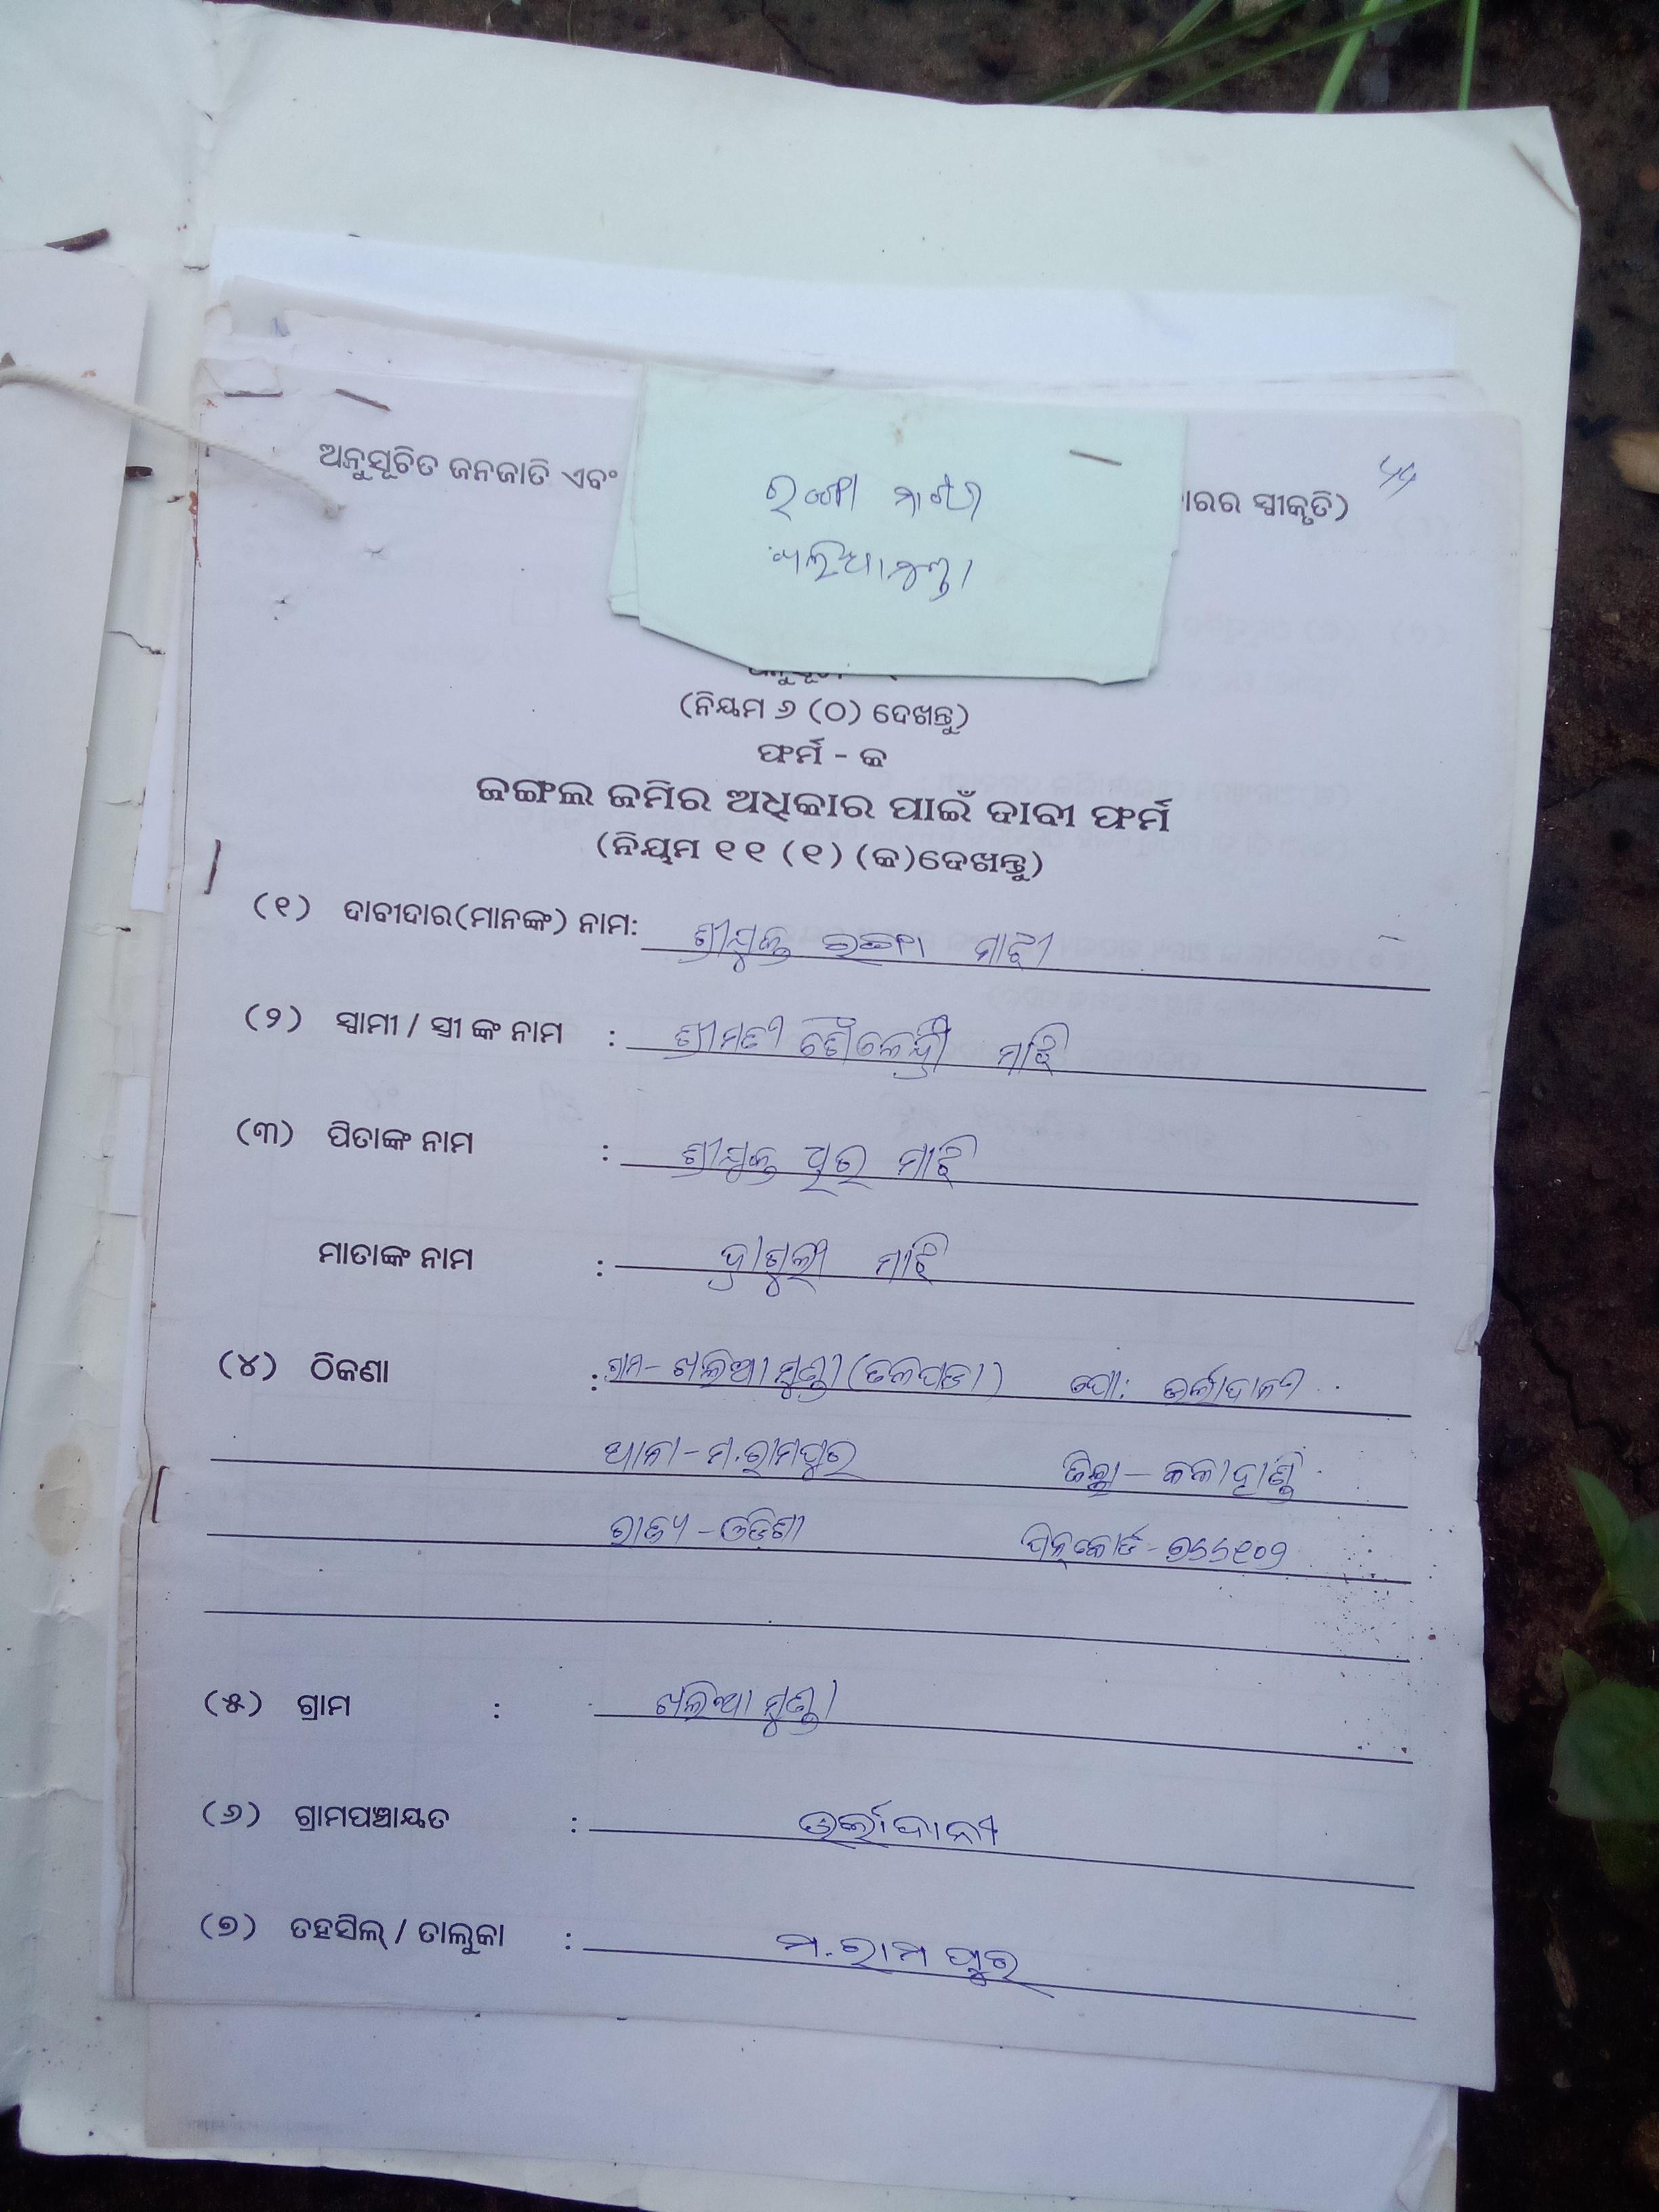 ଅନୁସୂଚିତ ଜନଜାତି ଏବଂ
ାରର ସ୍ୱୀକୃତି)
ଖଲିଆମୁଣ୍ଡା
(ନିୟମ ୬ (୦) ଦେଖନ୍ତୁ)
ଫର୍ମ - କ
ଜଙ୍ଗଲ ଜମିର ଅଧିକାର ପାଇଁ ଦାବୀ ଫର୍ମ
(ନିୟମ ୧୧ (୧) (କ)ଦେଖନ୍ତୁ)
(୧) ଦାବୀଦାର(ମାନଙ୍କ) ନାମ: ଶ୍ରୀଯୁକ୍ତ ରଙ୍ଗା ମାଝୀ
(୨) ସ୍ୱାମୀ / ସ୍ତ୍ରୀ ଙ୍କ ନାମ : ଶ୍ରୀମତୀ ମାଝି
(୩) ପିତାଙ୍କ ନାମ : ଶ୍ରୀଯୁକ୍ତ ମାଝି
ମାତାଙ୍କ ନାମ : ମାଝି
(୪) ଠିକଣା : ଗ୍ରାମ- ଖଲିଆମୁଣ୍ଡା (ତଳପଡା) ପୋ: ଉର୍ଲାଦାନୀ
ଥାନା - ମ.ରାମପୁର ଜିଲ୍ଲା - କଳାହାଣ୍ଡି
ରାଜ୍ୟ - ଓଡ଼ିଶା ପିନ୍‌କୋର୍ଡ - ୭୬୬୧୦୨
(୫) ଗ୍ରାମ : ଖଲିଆମୁଣ୍ଡା
(୬) ଗ୍ରାମପଞ୍ଚାୟତ : ଉର୍ଲାଦାନୀ
(୭) ତହସିଲ୍ / ତାଲୁକା : ମ.ରାମପୁର